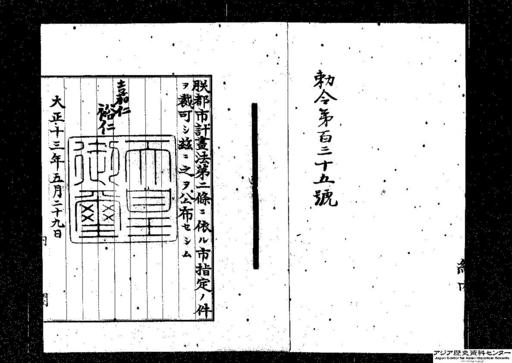 勅令第百三十五號
朕都市計畫法第二條ニ依ル市指定ノ件
ヲ裁可シ茲ニ之ヲ公布セシム
嘉仁
裕仁
天皇御璽
大正十三年五月二十九日
アジア歴史資料センター
Japan Center for Asian Historical Records